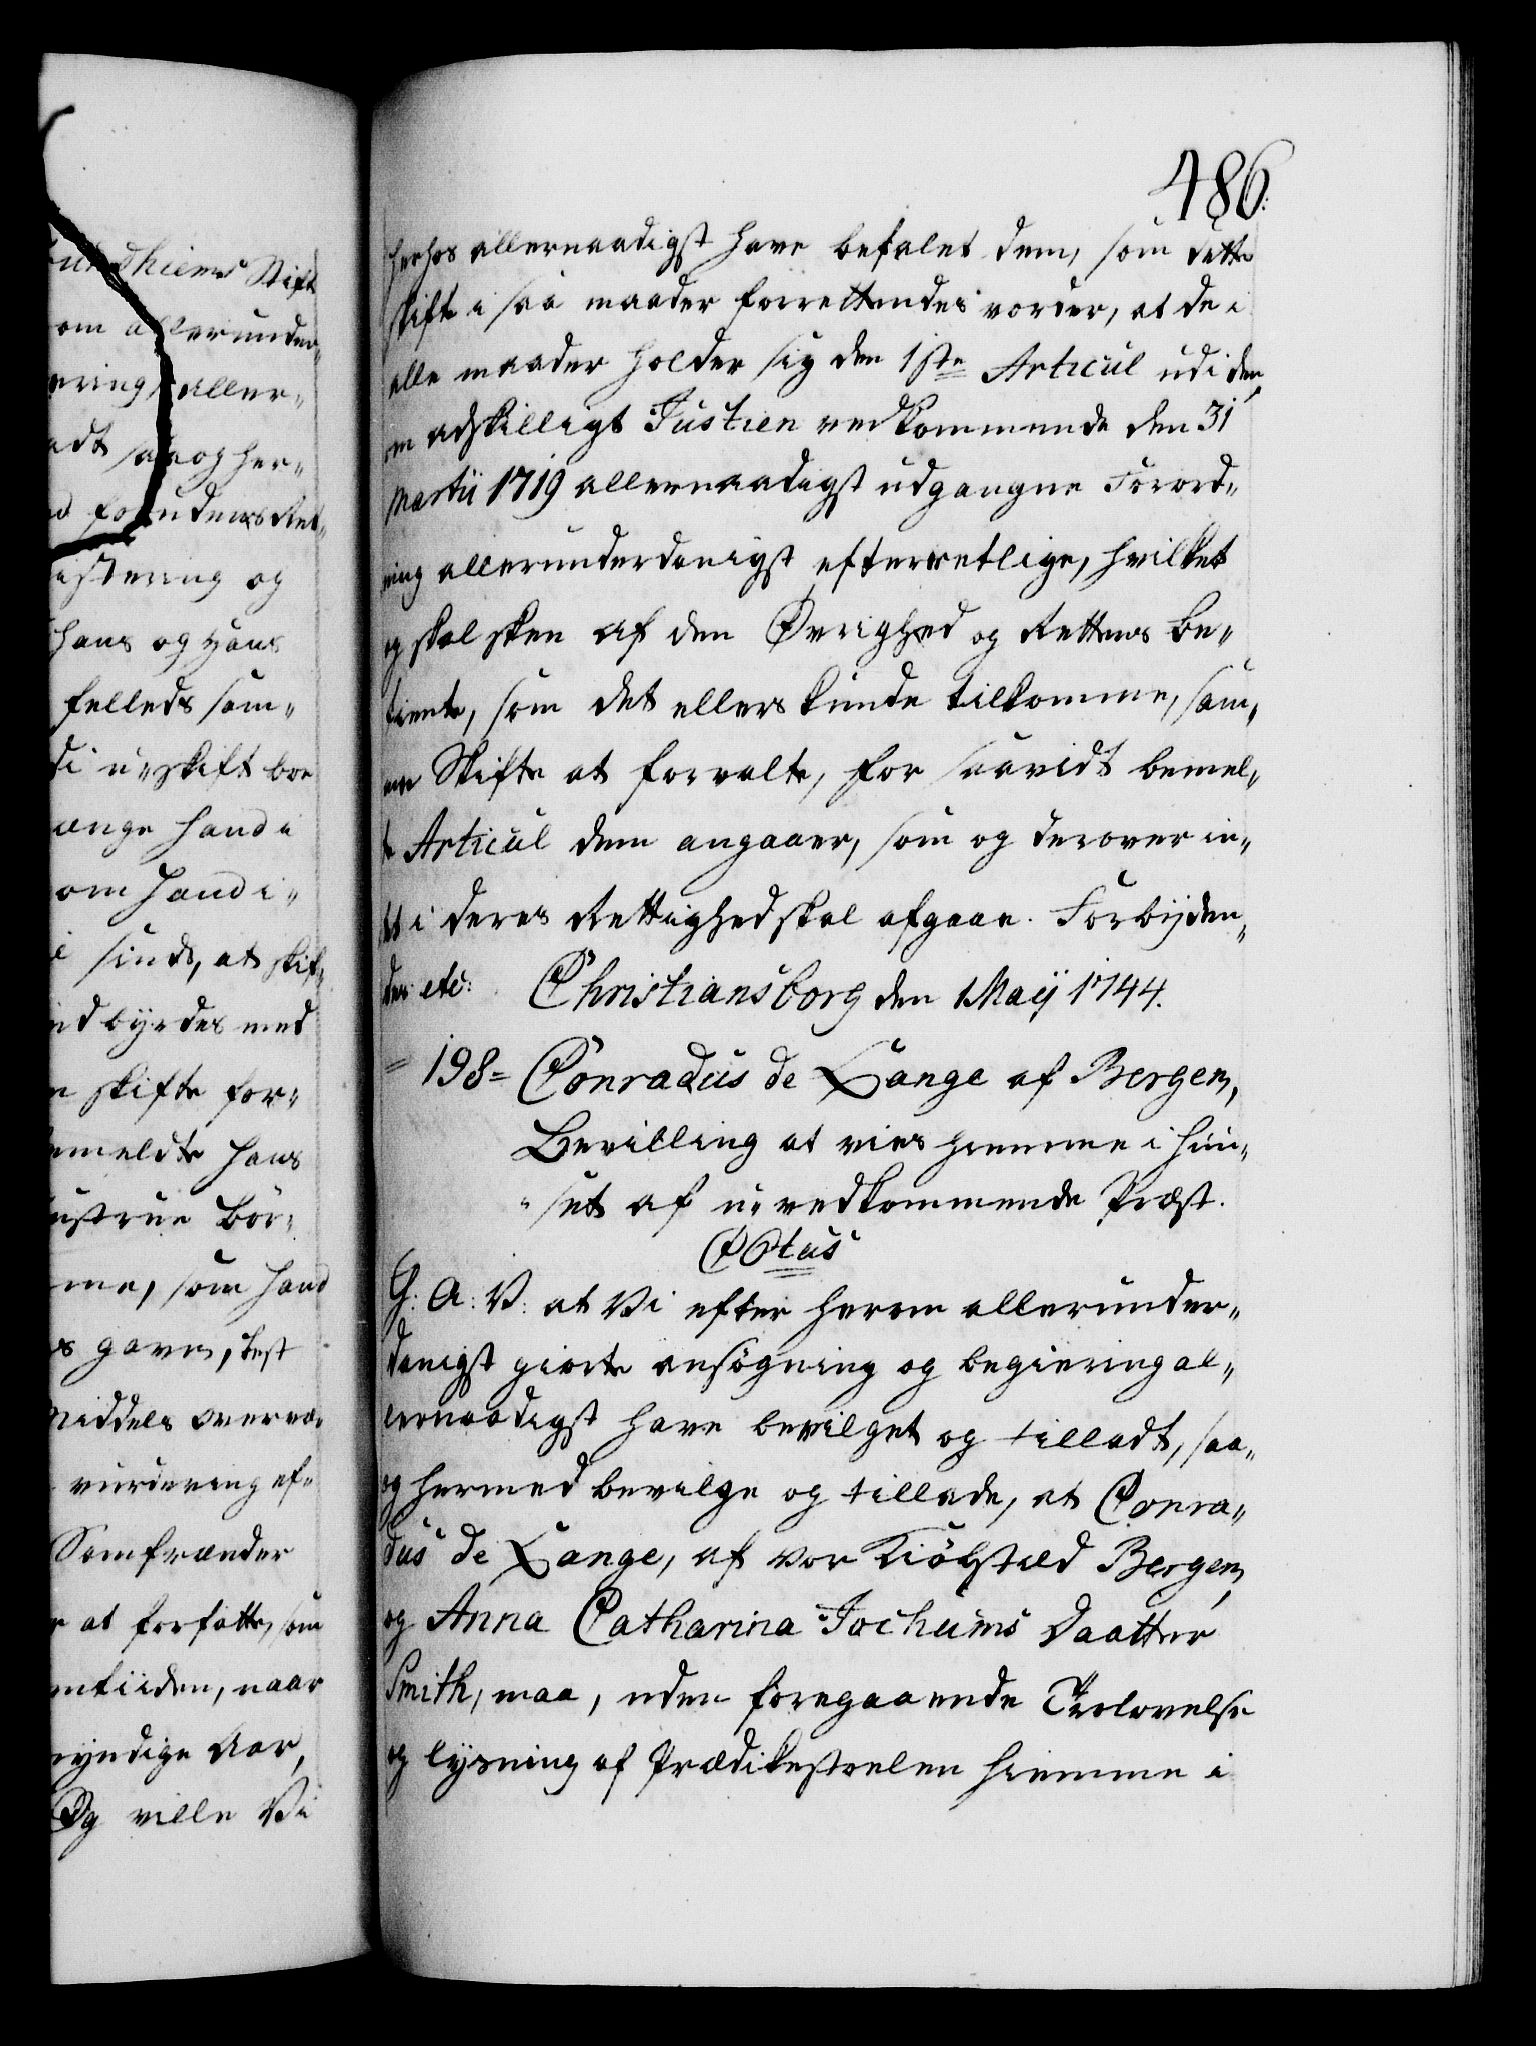 undhiems Stift
om allerunder„
ering aller„
adt saa og her„
d foruden Ret„
istering og
hans og hans
felleds sam„
di u„skift boe
ænge hand i
om hand i„
i sinde, at skif„
ind byrdes med
n skifte for„
emeldte hans
ustrue bör„
me, som hand
s gavn, best
middels overvæ„
vurdering ef„
Samfrænder
at forfatte, som
mtiiden, naar
myndige Aar,
Og ville Vi
486.
herhos allernaadigst have befalet dem, som dette
skifte i saa maader forrettendes vorder, at de i
alle maader holder sig den 1ste Articul udi den
om adskilligt Justien vedkommende den 31
Martii 1719 allernaadigst udgangne Forord„
ning allerunderdanigst efterretlige, hvilket
og skal skee af den Øvrighed og Rettens be„
tiente, som det ellers kunde tilkomme, sam„
me Skifte at forvalte, for saavidt bemel„
te Articul dem angaaer, som og derover in„
tet i deres Rettighed skal afgaae. Forbyden„
des etc: Christiansborg den 1 Maij 1744.
= 198 = Conradus de Lange af Bergen,
Bevilling at vies hiemme i huu„
„set af u„vedkommende Præst.
C Otus
G: A: V: at Vi efter herom allerunder„
danigst giorte ansögning og begiering al„
lernaadigst have bevilget og tilladt, saa„
og hermed bevilge og tillade, at Conra„
dus de Lange, af vor Kiöbstæd Bergen,
og Anna Catharina Jochums Daatter
Smith, maa, uden foregaaende Trolovelse
og lysning af Prædikestoelen hiemme i